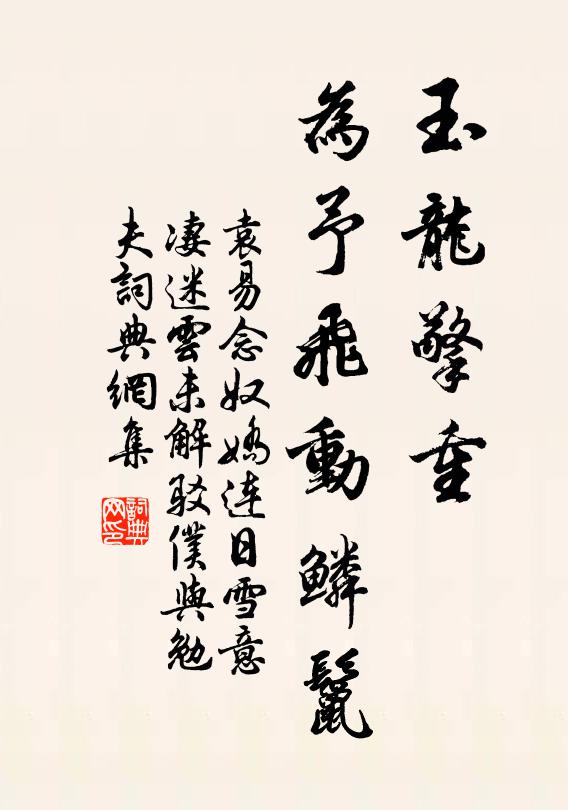 玉龍擎重
為予飛動鱗鬣
袁易念奴嬌連日雪意
凄迷雲未解駁僕與勉
夫詞典網集
詞典网印